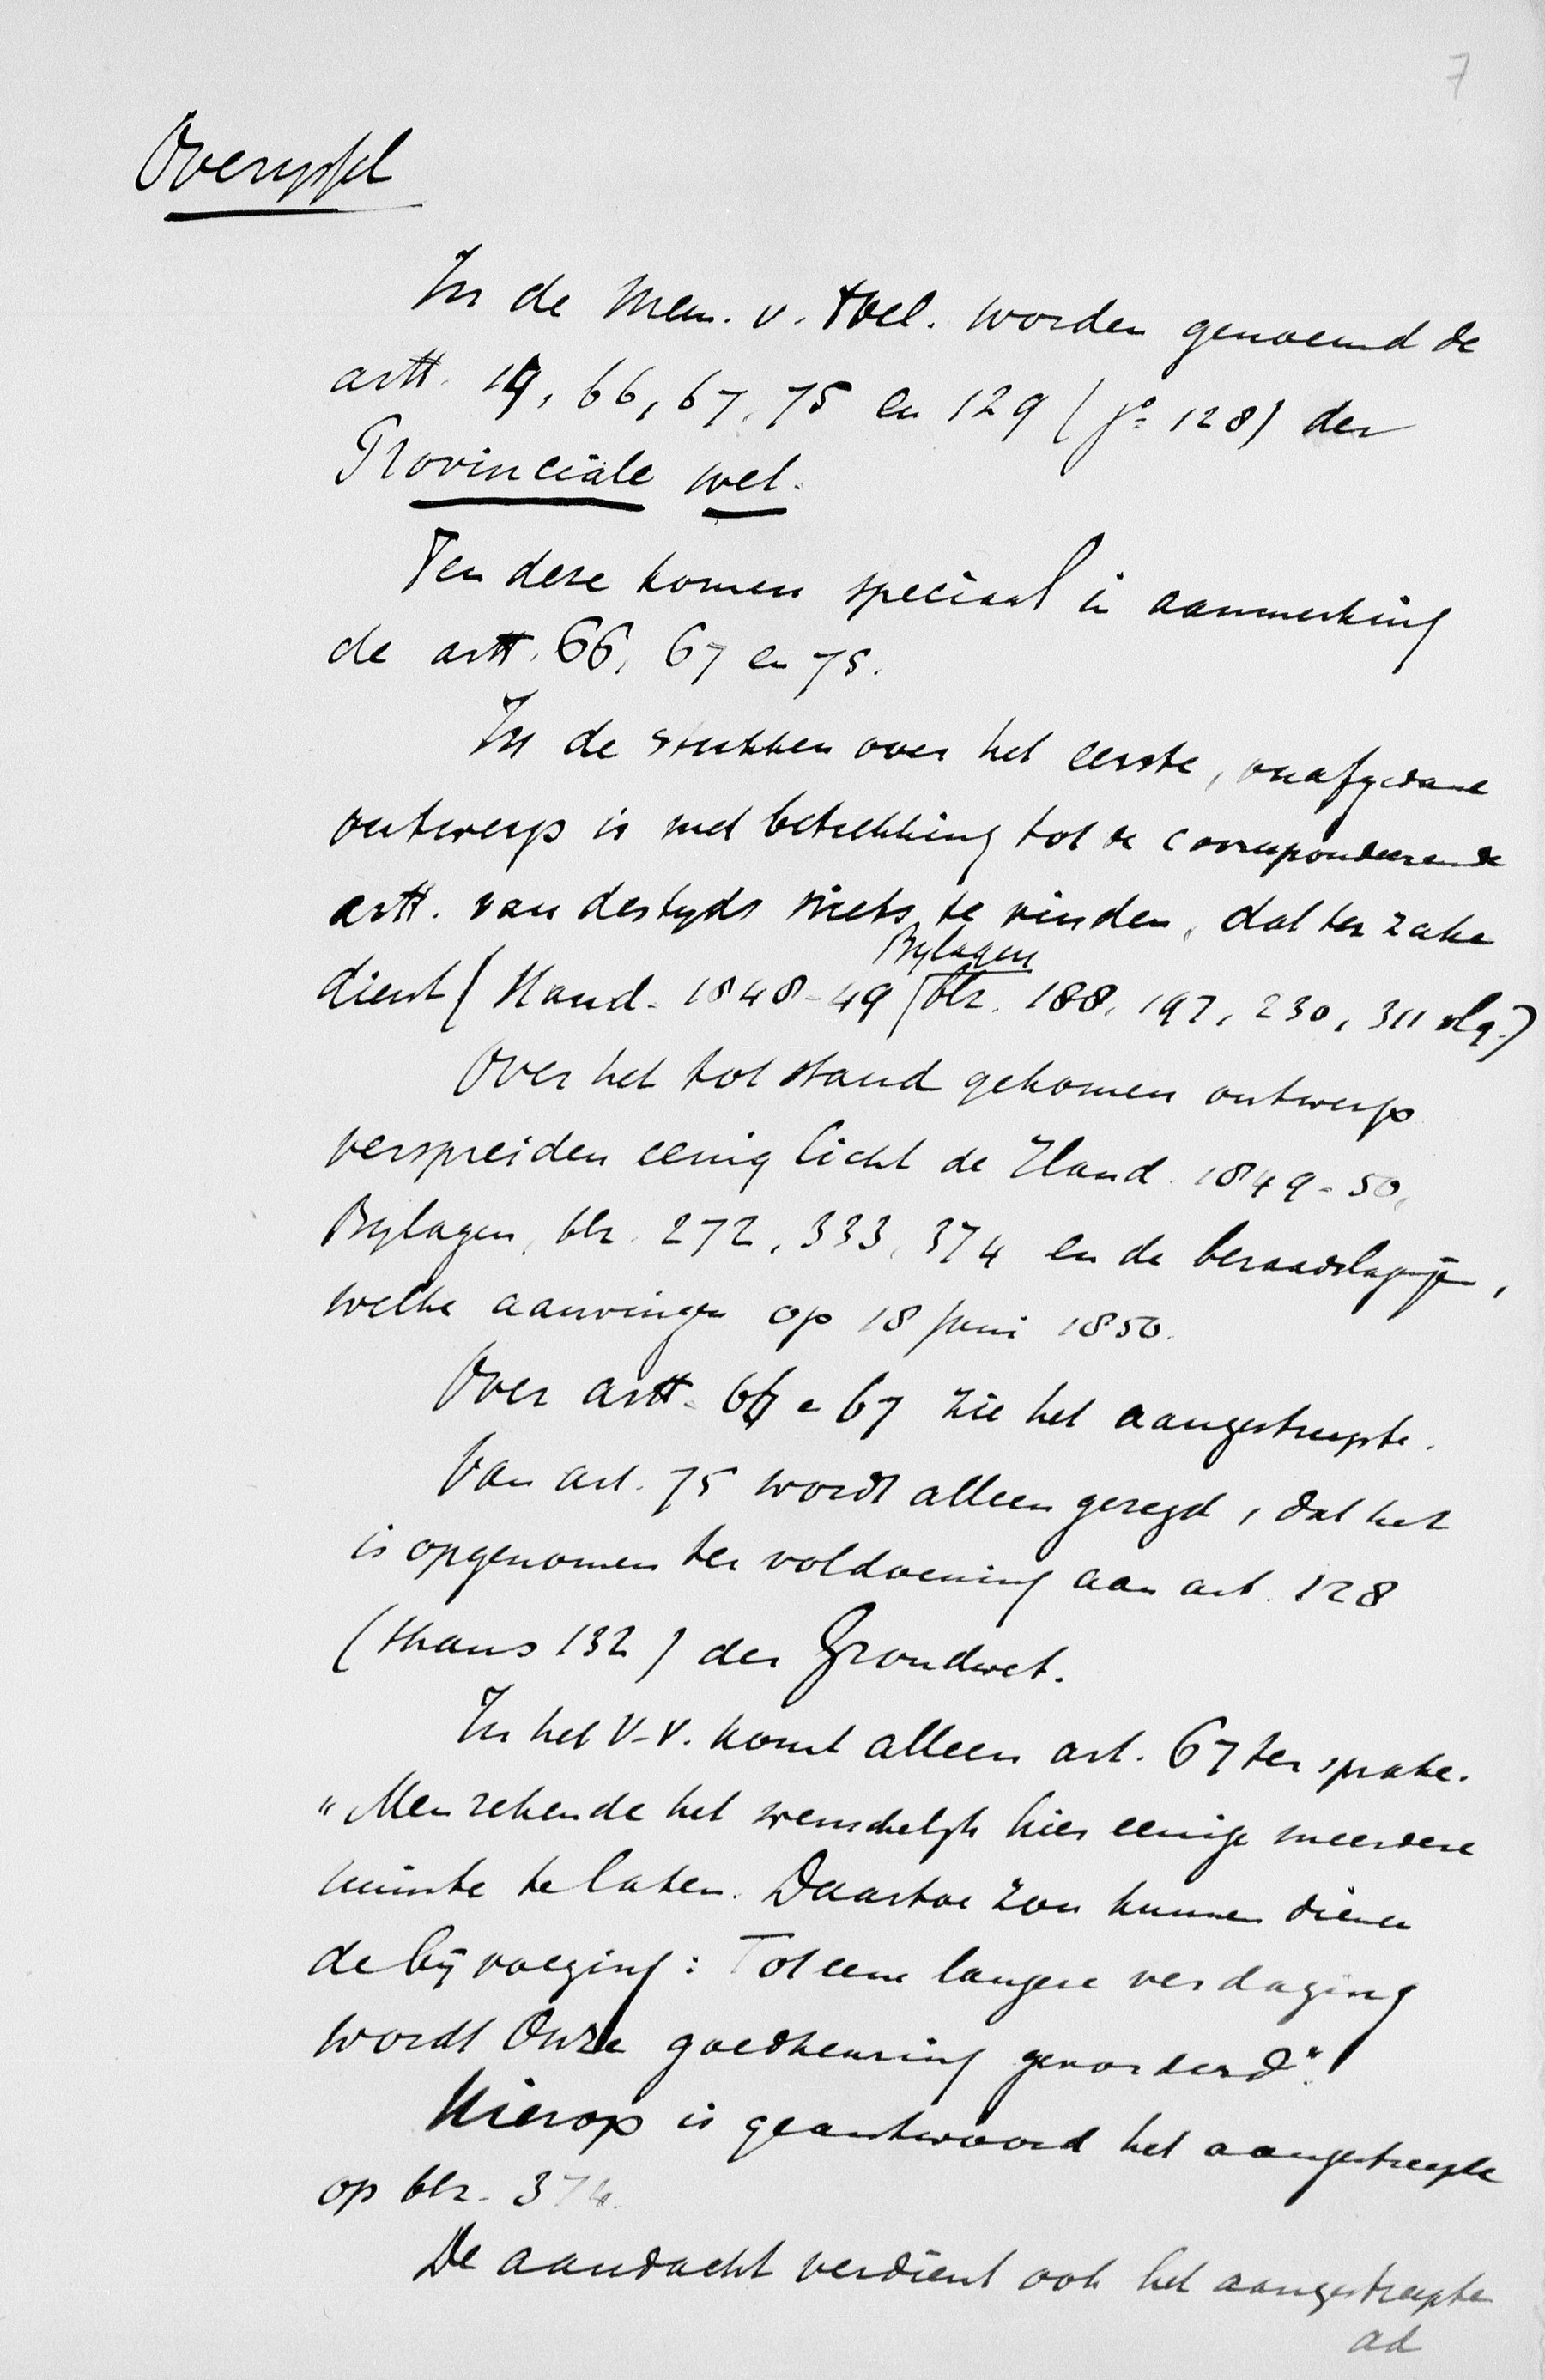 7
Overijssel
In de Mem. v. toel. worden genoemd de
artt. 19, 66, 67, 75 en 129 (jº 128) der
Provinciale wet.
Ten deze komen speciaal in aanmerking
de artt. 66, 67 en 75.
In de stukken over het eerste, onafgedane
ontwerp is met betrekking tot de correspondeerende
artt. van destyds niets te vinden, dat ter zake
Bylagen
dient (Hand. 1848-49 blz. 188, 197, 230, 311 vlg.)
Over het tot stand gekomen ontwerp
verspreiden eenig licht de Hand. 1849-50,
Bylagen, blz. 272, 333, 374 en de beraadslagingen,
welke aanvingen op 18 Juni 1850.
Over artt. 66 e 67 zie het aangestreepte.
Van art. 75 wordt alleen gezegd, dat het
is opgenomen ter voldoening aan art. 128
(thans 132) der Grondwet.
In het V.V. komt alleen art. 67 ter sprake.
"Men rekende het wenschelyk hier eenige meerdere
ruimte te laten. Daartoe zou kunnen dienen
de byvoeging: Tot eene langere verdaging
wordt Onze goedkeuring gevorderd".
Hierop is geantwoord het aangestreepte
op blz. 374.
De aandacht verdient ook het aangestreepte
ad